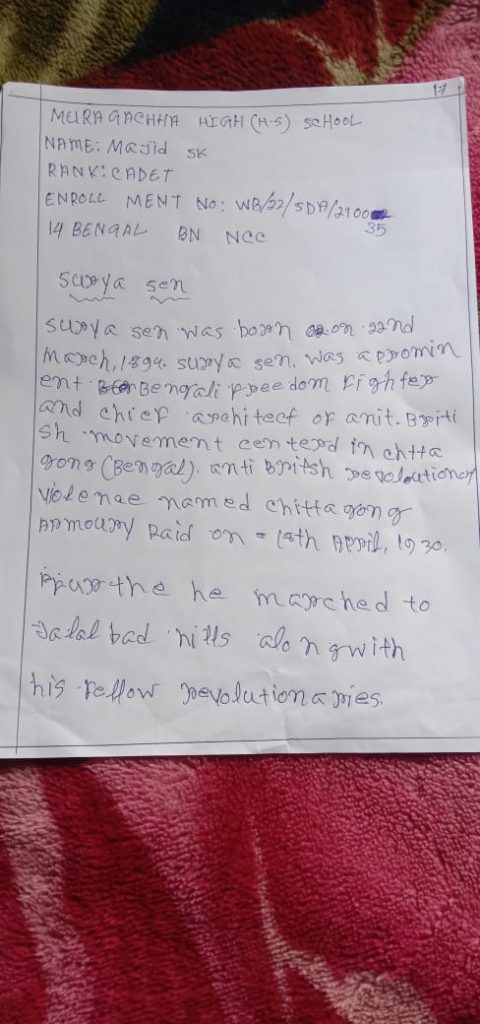 17
MURAGACHHA HIGH (H.S) SCHOOL
NAME: Masid SK
RANK: CADET
ENROLL MENT No: WB/22/SDA/2100
35
14 BENGAL BN NCC
surya sen
surya sen was born on 22nd
March, 1894. surya sen. was a promin
ent Bengali freedom fighter
and chief architect of anit. Briti
sh movement centerd in chtta
gong (Bengal). anti British revolutionary
violenae named chittagong
Armoury Raid on 18th April, 1930.
furthe he marched to
Jalalbad hills alongwith
his fellow revolutionaries.